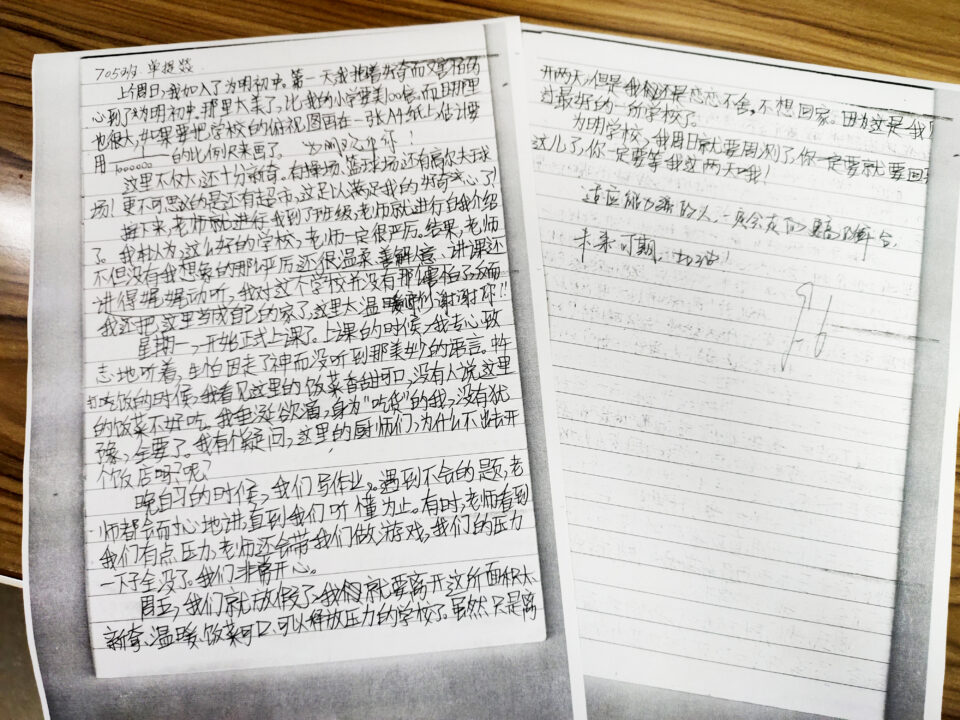 705班 单
上周日,我加入了为明初中。第一天我抱着好奇而又害怕的
心到了为明初中。那里太美了,比我的小学要美100倍,而且那里
也很大,如果要把学校的俯视图画在一张A4纸上,估计要
用 的比例尺来画了。
这里不仅大,还十分新奇。有操场、篮球场还有高尔夫球
场!更不可思议的是还有超市,这足以满足我的好奇心了!
接下来,老师就进行我到了班级,老师就进行自我介绍
了。我本以为,这么好的学校,老师一定很严厉。结果,老师
不但没有我想象的那么严厉,还很温柔、善解人意、讲课还
讲得娓娓动听,我对这个学校并没有那么害怕了,反而
我还把这里当成自己的家了,这里太温暖了,谢谢你!!
星期一,开始正式上课了。上课的时候,我专心致
志地听着,生怕因走了神而没听到那美妙的语言。中午
打饭的时候,我看见这里的饭菜香甜可口,没有人说这里
的饭菜不好吃。我垂涎欲滴,身为“吃货”的我,没有犹
豫,全要了。我有个疑问,这里的厨师们,为什么不出去开
个饭店呢?
晚自习的时候,我们写作业。遇到不会的题,老
师都会耐心地讲,直到我们听懂为止。有时,老师看到
我们有点压力,老师还会带我们做游戏,我们的压力
一下子全没了。我们非常开心。
周五,我们就放假了,我们就要离开这所面积大、
新奇、温暖、饭菜可口、可以释放压力的学校了。虽然只是离
开两天,但是我们还是恋恋不舍,不想回家。因为这是我
过最好的一所学校了。
为明学校,我周日就要周测了,你一定要就要回到
这儿了,你一定要等我这两天哦!
适应能力强的人,一定会在 更高的舞台,
未来可期,加油!